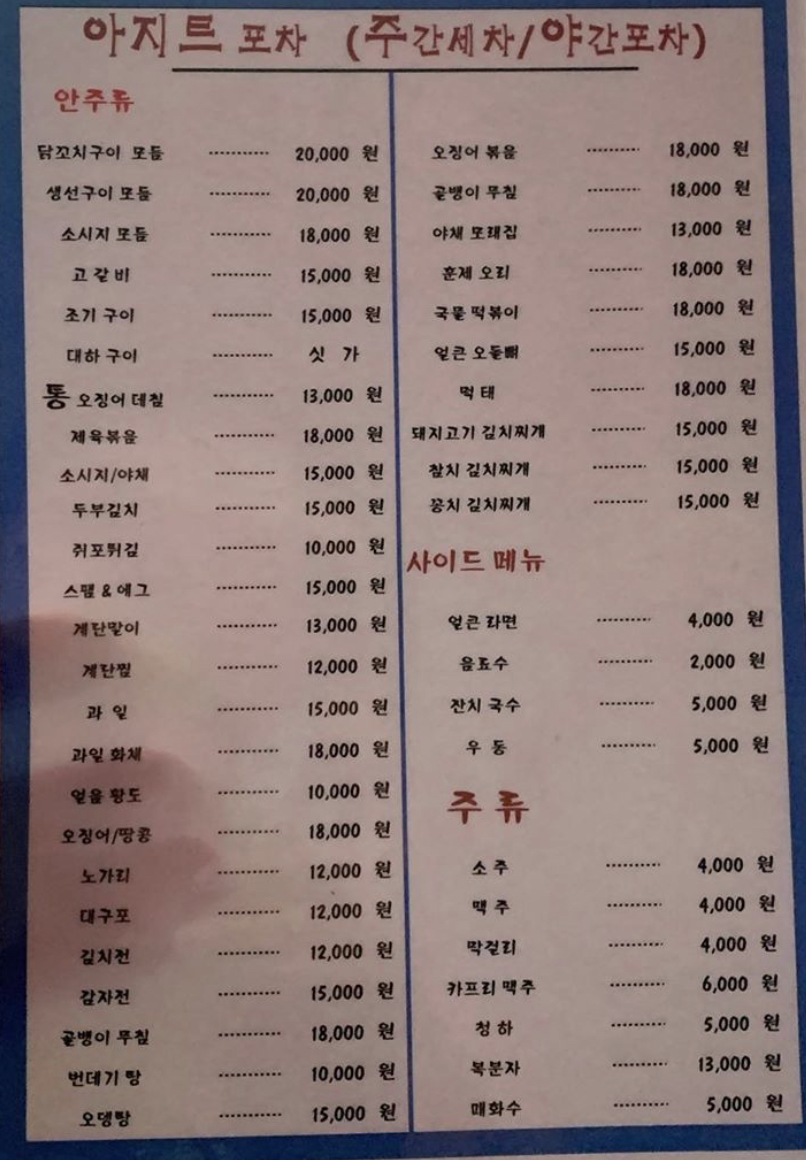 아지트 포차 (주간세차/야간포차)
안주류
닭꼬치구이 모듬 ---------- 20,000 원
생선구이 모듬 ---------- 20,000 원
소시지 모듬 ---------- 18,000 원
고 갈 비 ---------- 15,000 원
조기 구이 ---------- 15,000 원
대하 구이 ---------- 싯 가
통 오징어 데침 ---------- 13,000 원
제육볶음 ---------- 18,000 원
소시지/야채 ---------- 15,000 원
두부김치 ---------- 15,000 원
쥐포튀김 ---------- 10,000 원
스팸 & 에그 ---------- 15,000 원
계란말이 ---------- 13,000 원
계란찜 ---------- 12,000 원
과 일 ---------- 15,000 원
과일 화채 ---------- 18,000 원
얼음 황도 ---------- 10,000 원
오징어/땅콩 ---------- 18,000 원
노가리 ---------- 12,000 원
대구포 ---------- 12,000 원
김치전 ---------- 12,000 원
감자전 ---------- 15,000 원
골뱅이 무침 ---------- 18,000 원
번데기 탕 ---------- 10,000 원
오뎅탕 ---------- 15,000 원
오징어 볶음 --------- 18,000 원
골뱅이 무침 --------- 18,000 원
야채 모래집 --------- 13,000 원
훈제 오리 --------- 18,000 원
국물 떡볶이 --------- 18,000 원
얼큰 오돌뼈 --------- 15,000 원
먹 태 --------- 18,000 원
돼지고기 김치찌개 --------- 15,000 원
참치 김치찌개 --------- 15,000 원
꽁치 김치찌개 --------- 15,000 원
사이드 메뉴
얼큰 라면 --------- 4,000 원
음료수 --------- 2,000 원
잔치 국수 --------- 5,000 원
우 동 --------- 5,000 원
주 류
소 주 --------- 4,000 원
맥 주 --------- 4,000 원
막걸리 --------- 4,000 원
카프리 맥주 --------- 6,000 원
청 하 --------- 5,000 원
복분자 --------- 13,000 원
매화수 --------- 5,000 원